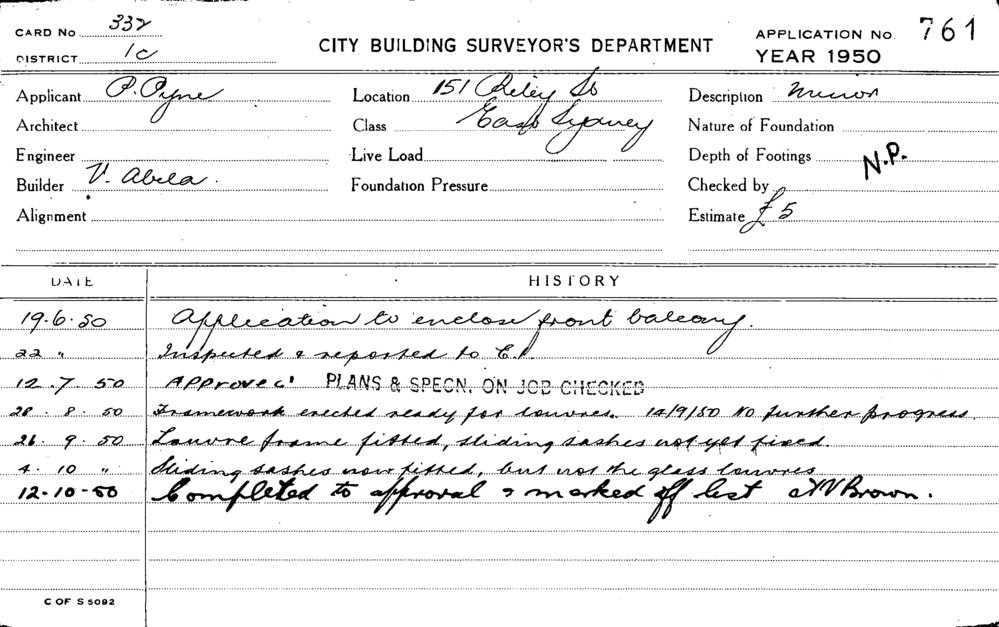 CARD No 332
DISTRICT 1c
CITY BUILDING SURVEYOR'S DEPARTMENT
APPLICATION No. 761
YEAR 1950
Applicant P. Pyne
Architect
Engineer
Builder V. Abela.
Alignment
Location 151 Riley St
Class East Sydney
Live Load
Foundation Pressure
Description Minor
Nature of Foundation
Depth of Footings N.P.
Checked by
Estimate £5
DATE HISTORY
19.6.50 Application to enclose front balcony.
22 " Inspected & reported to
12.7.50 Approved PLANS & SPECN. ON JOB CHECKED
28.8.50 Framework erected ready for louvres. 14/9/50 No further progress.
26.9.50 Louvre frame fitted, sliding sashes not yet fixed.
4.10 " Sliding sashes now fitted, but not the glass louvres
12-10-50 Completed to approval & marked off list Brown.
C OF S 5092